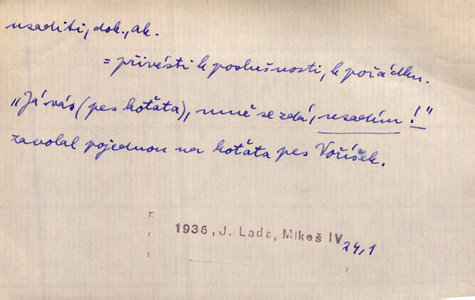 usaditi, dok., ak.
= přivésti k poslušnosti, k pořádku.
„Já vás (pes koťata), mně se zdá, usadím!"
zavolal pojednou na koťata pes Voříšek.
1936, J. Lada, Mikeš IV 24,1